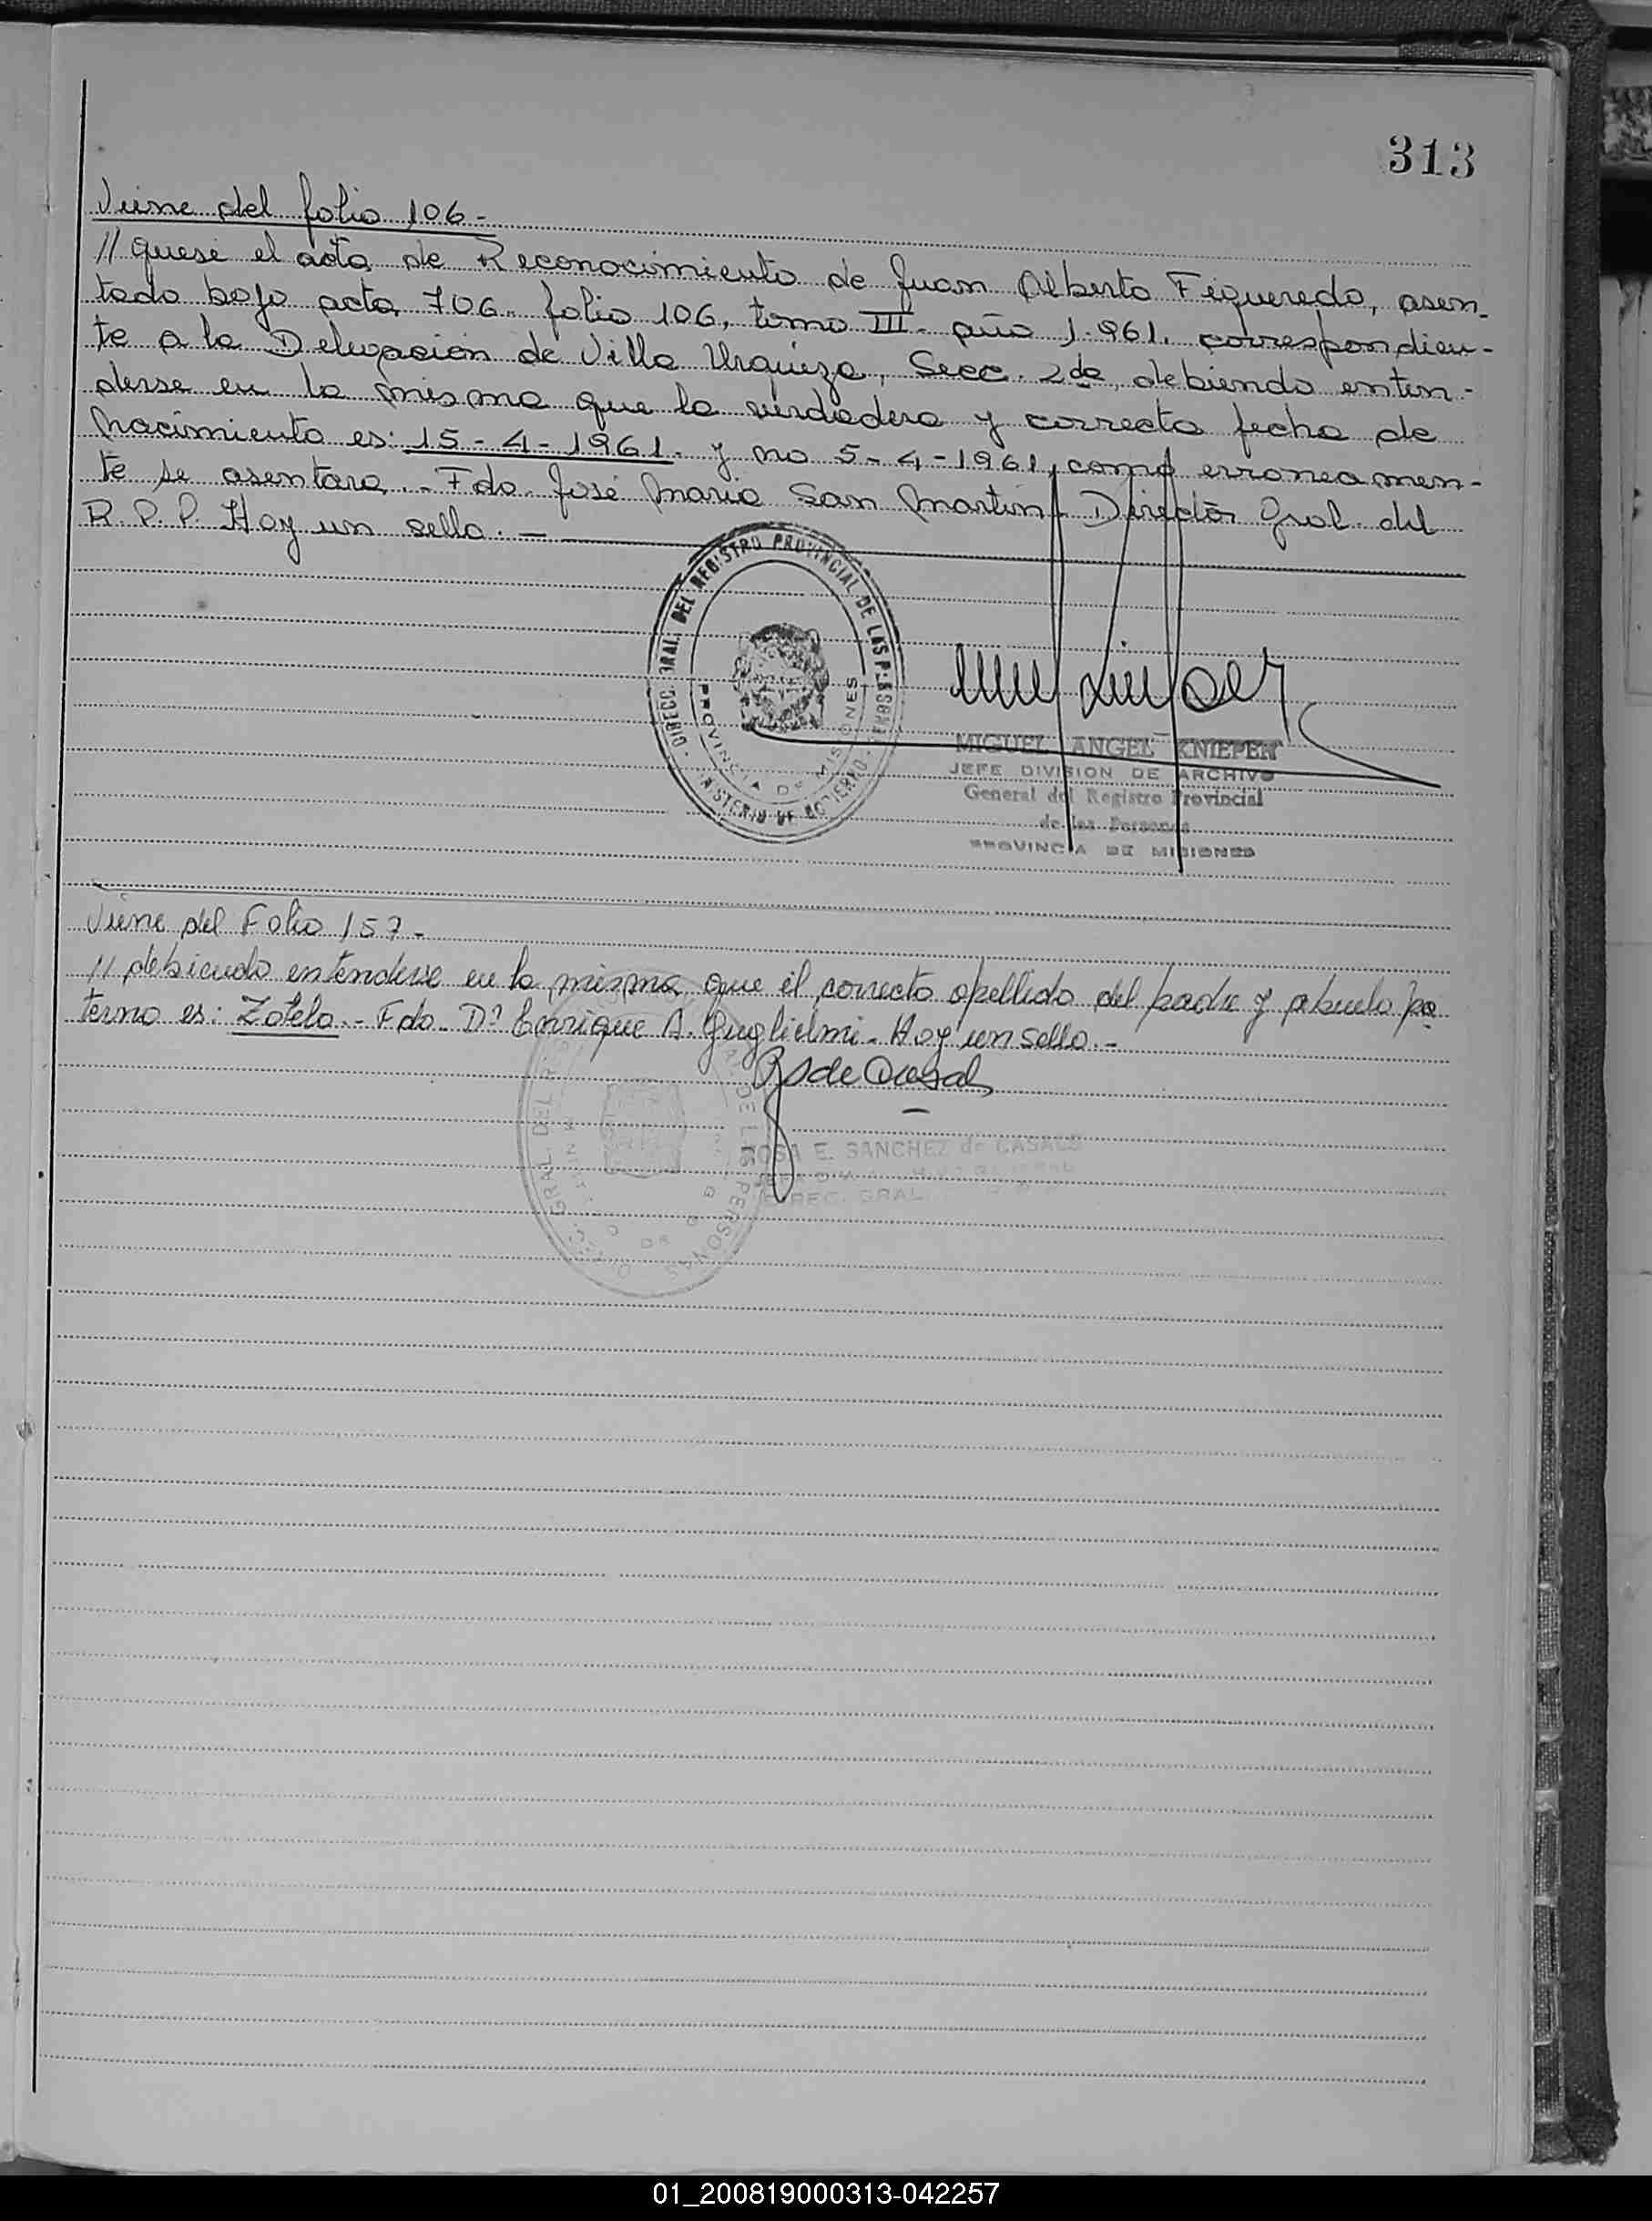 313
Viene del folio 106.-
// quese el acta de Reconocimiento de Juan Alberto Figueredo, asen-
tado bajo acta 706. folio 106, tomo III. año 1.961. correspondien-
te a la Delegación de Villa Urquiza, Secc. 2da, debiendo enten-
derse en la misma que la verdadera y correcta fecha de
Nacimiento es: 15-4-1961. y no 5-4-1961, como erroneamen-
te se asentara.- Fdo. José Mario San Martin- Director Gral. del
R.P.P. Hay un sello.-
DIRECC. GRAL. DEL REGISTRO PROVINCIAL DE LAS PERSONAS
MINISTERIO DE GOBIERNO
PROVINCIA DE MISIONES
MIGUEL ANGEL KNIEPER
JEFE DIVISION DE ARCHIVO
General del Registro Provincial
de las Personas
PROVINCIA DE MISIONES
Viene del Folio 157.-
// debiendo entenderse en la misma que el correcto apellido del padre y abuelo pa
terno es: Zotelo.- Fdo. Dº Enrique A. Guglielmi- Hay un sello.-
GRAL. DEL
DE LAS PERSONAS
ROSA E. SANCHEZ de CASALS
DIREC. GRAL.
01_200819000313-042257